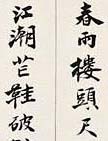 春雨樓頭尺
江潮芒鞋破